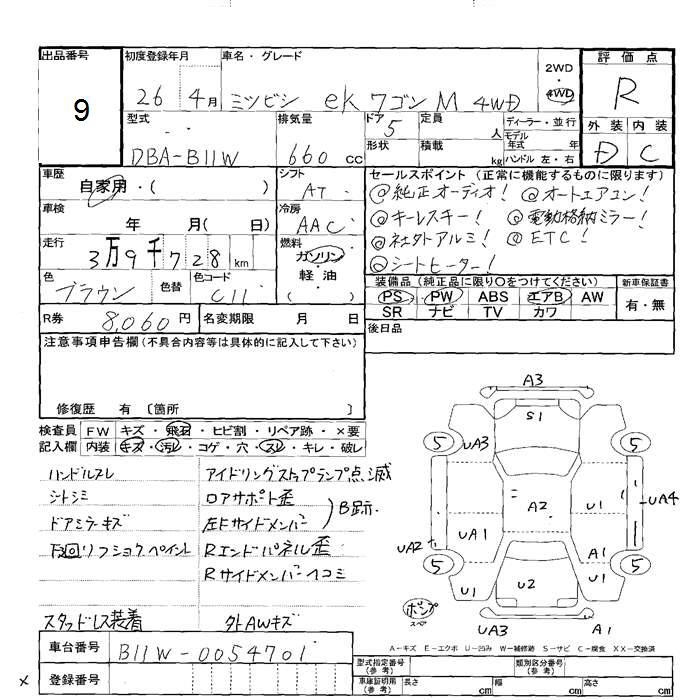 出品番号
9
初度登録年月
26 4月
車名・グレード
ミツビシ ek ワゴン M 4WD
2WD
4WD
評価点
R
外装 内装
D C
型式
DBA-B11W
排気量
660 cc
ドア
5
形状
定員
人
積載
kg
ディーラー・並行
モデル
年式 年
ハンドル 左・右
車歴
自家用・( )
シフト
AT
車検
年 月( 日)
冷房
AAC
走行
3万9千728km
燃料
ガソリン
軽油
( )
色
ブラウン
色替
色コード
C11
R券
8,060円
名変期限 月 日
セールスポイント (正常に機能するものに限ります)
@純正オーディオ! @オートエアコン!
@キーレスキー! @電動格納ミラー!
@社外アルミ! @ETC!
@シートヒーター!
装備品 (純正品に限り○をつけてください)
PS PW ABS エアB AW
SR ナビ TV カワ
新車保証書
有・無
後日品
注意事項申告欄(不具合内容等は具体的に記入して下さい)
修復歴 有 〔箇所 〕
検査員
記入欄
FW キズ・飛石・ヒビ割・リペア跡・×要
内装 キズ・汚レ・コゲ・穴・スレ・キレ・破レ
ハンドルスレ
シートシミ
ドアミラーキズ
下回リフショクペイント
スタッドレス装着
アイドリングストップランプ点滅
ロアサポート歪
左Fサイドメンバー
B跡示.
Rエンドパネル歪
Rサイドメンバーヘコミ
外AWキズ
A3
S1
5
UA3
5
A2
U1
UA4
UA1
UA2
A1
5
U2
U1
5
ポンプ
スペ
UA3
A1
A-キズ E-エクボ U-凹み W-補修跡 S-サビ C-腐食 XX-交換済
車台番号
B11W-0054701
登録番号
×
型式指定番号
(参考)
類別区分番号
(参考)
車庫証明用
(参考)
長さ cm
幅 cm
高さ cm